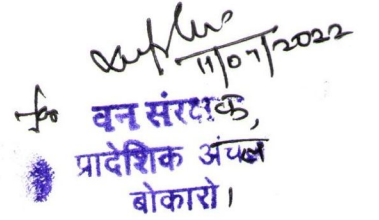 11/07/2022
for वन संरक्षक,
प्रादेशिक अंचल
बोकारो।